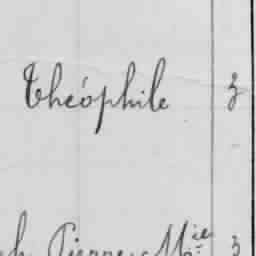 Théophile 3
Pierre Mie 3